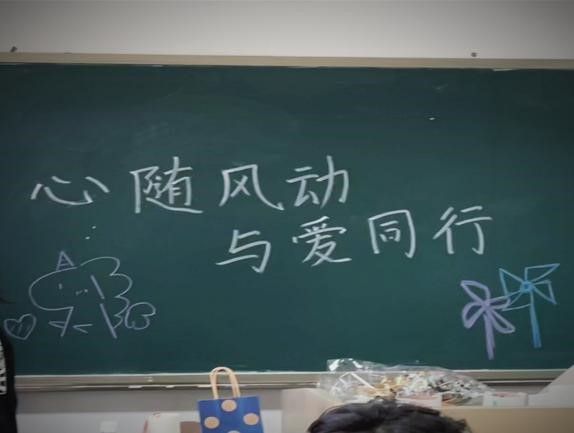 心随风动
与爱同行